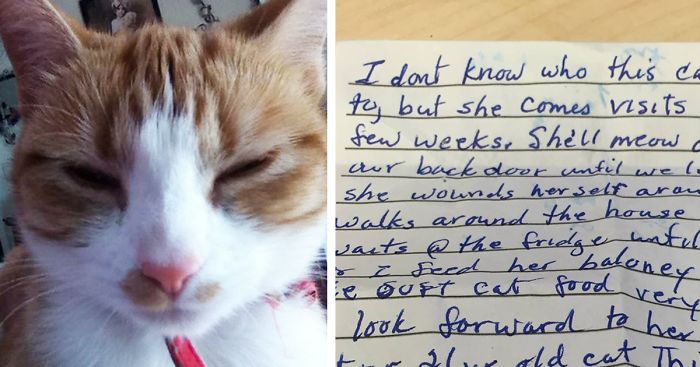 I dont know who this ca
to, but she comes visits
few weeks. She'll meow
our back door until we l
she wounds herself arou
walks around the house
waits @ the fridge until
I feed her baloney
cat food very
look forward to her
21 yr old cat Thi